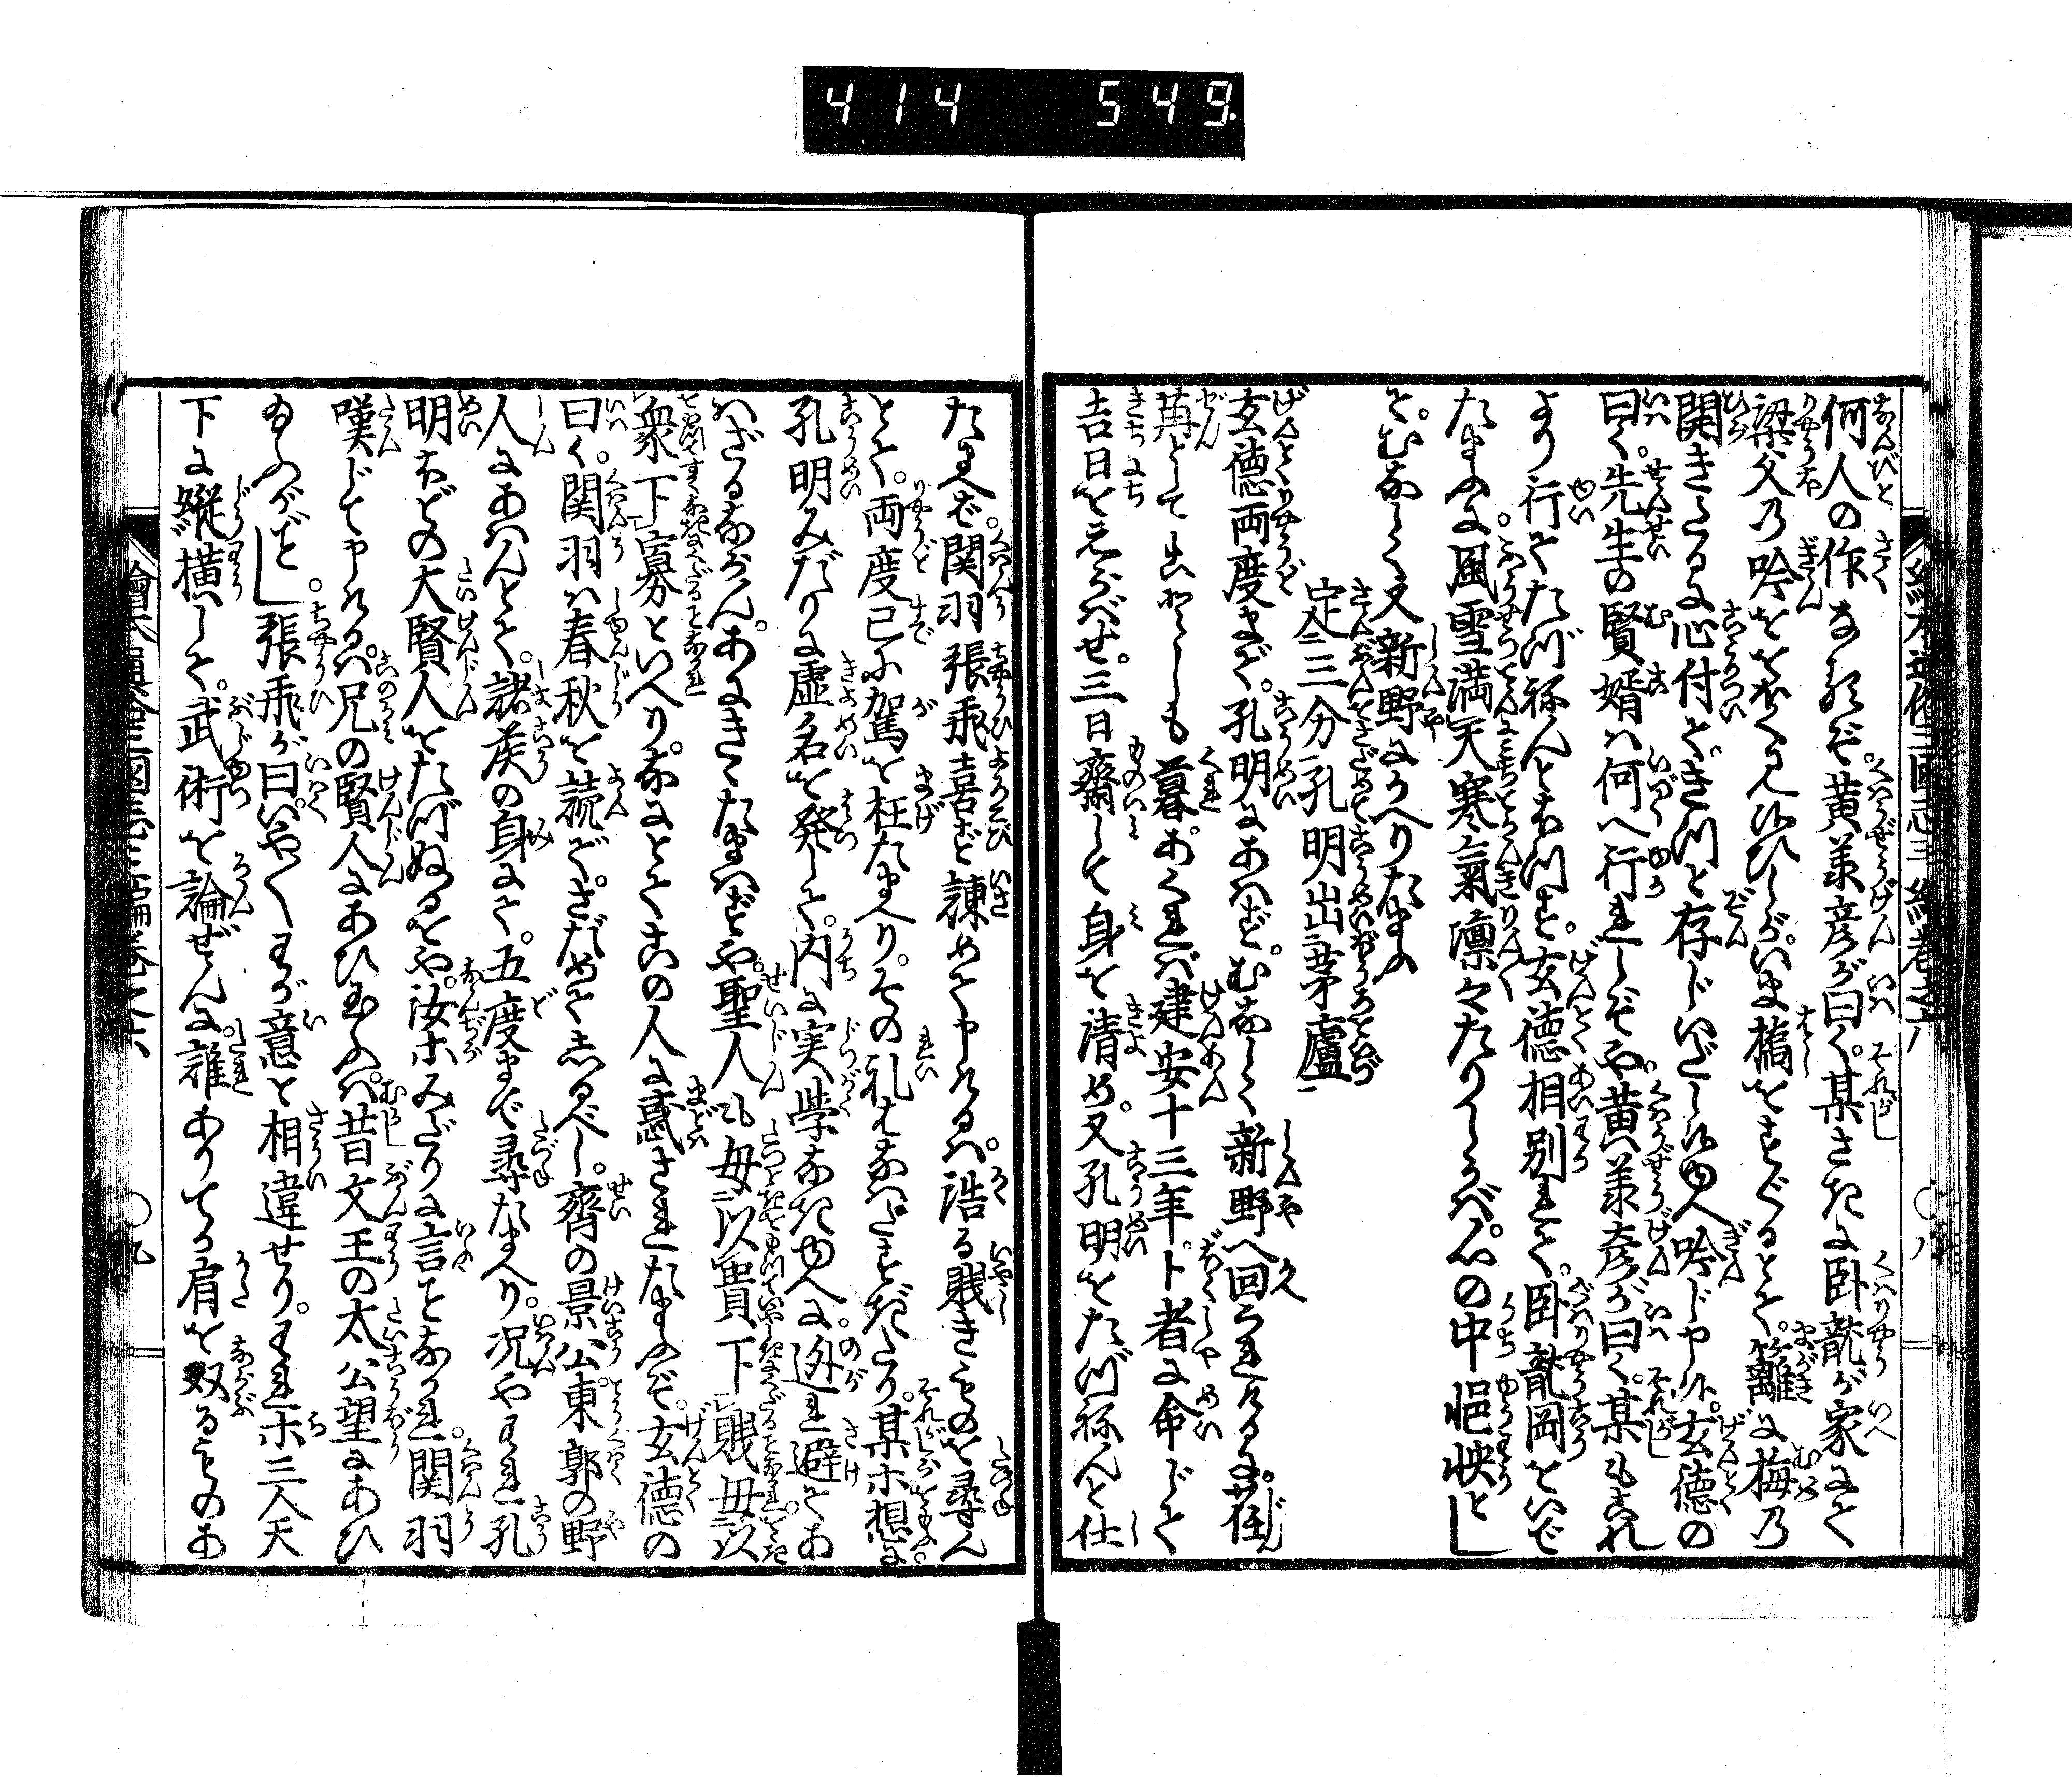 414 549
何人の作なるぞ。黄承彦が曰く。某さきに臥龍が家にて
梁父乃吟をとほくみ候ひしが。いま橋をすぐるとて。籬に梅乃
開きたるに心付て。きつと存じいだし候ゆへ吟じ申候。玄徳の
曰く。先生の賢婿ハ何へ行れしぞや。黄承彦が曰く。某もこれ
より行てたづねんとおもつと。玄徳相別れて。臥龍岡をいで
たまふに。風雪満天寒氣凛々たりしかバ。心の中悒怏とし
て。むなしく又新野にかへりたまふ
定三分孔明出茅廬
玄徳両度まで。孔明にあハず。むなしく新野へ回られけるに。荏
苒としてことしも暮あくれバ建安十三年。卜者に命じて
吉日をえらバせ。三日齋して身を清め。又孔明をたづねんと仕
たまへば。関羽張飛喜ばず諫めて申けるハ。誥る賎きものを尋ん
とて。両度已に駕を枉たまへり。その礼はなハだすぎたり。某ホ想に
孔明みだりに虚名を発して。内に実学なきゆへに。迯れ避てあ
ハざるならん。あにきゝたまハずや。聖人も毋以貴下賎毋以
衆下寡といへり。なにとてこの人に惑されたまふぞ。玄徳の
曰く。関羽ハ春秋を読で。さだめてしるべし。齊の景公東郭の野
人にあハんとて。諸侯の身にて。五度まで尋たまへり。况やわれ孔
明ほどの大賢人をたづぬるをや。汝ホみだりに言ことなかれ。関羽
嘆じて申けるハ。兄の賢人にあひ玉ふハ。昔文王の太公望にあひ
玉ふがごとし。張飛が曰。いやくわが意と相違せり。われホ三人天
下に縦横して。武術を論ぜんに。誰ありてか肩を双るものあ